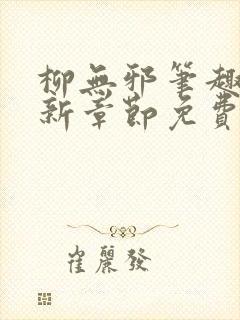 柳無邪筆趣
新章節免費
崔麗發